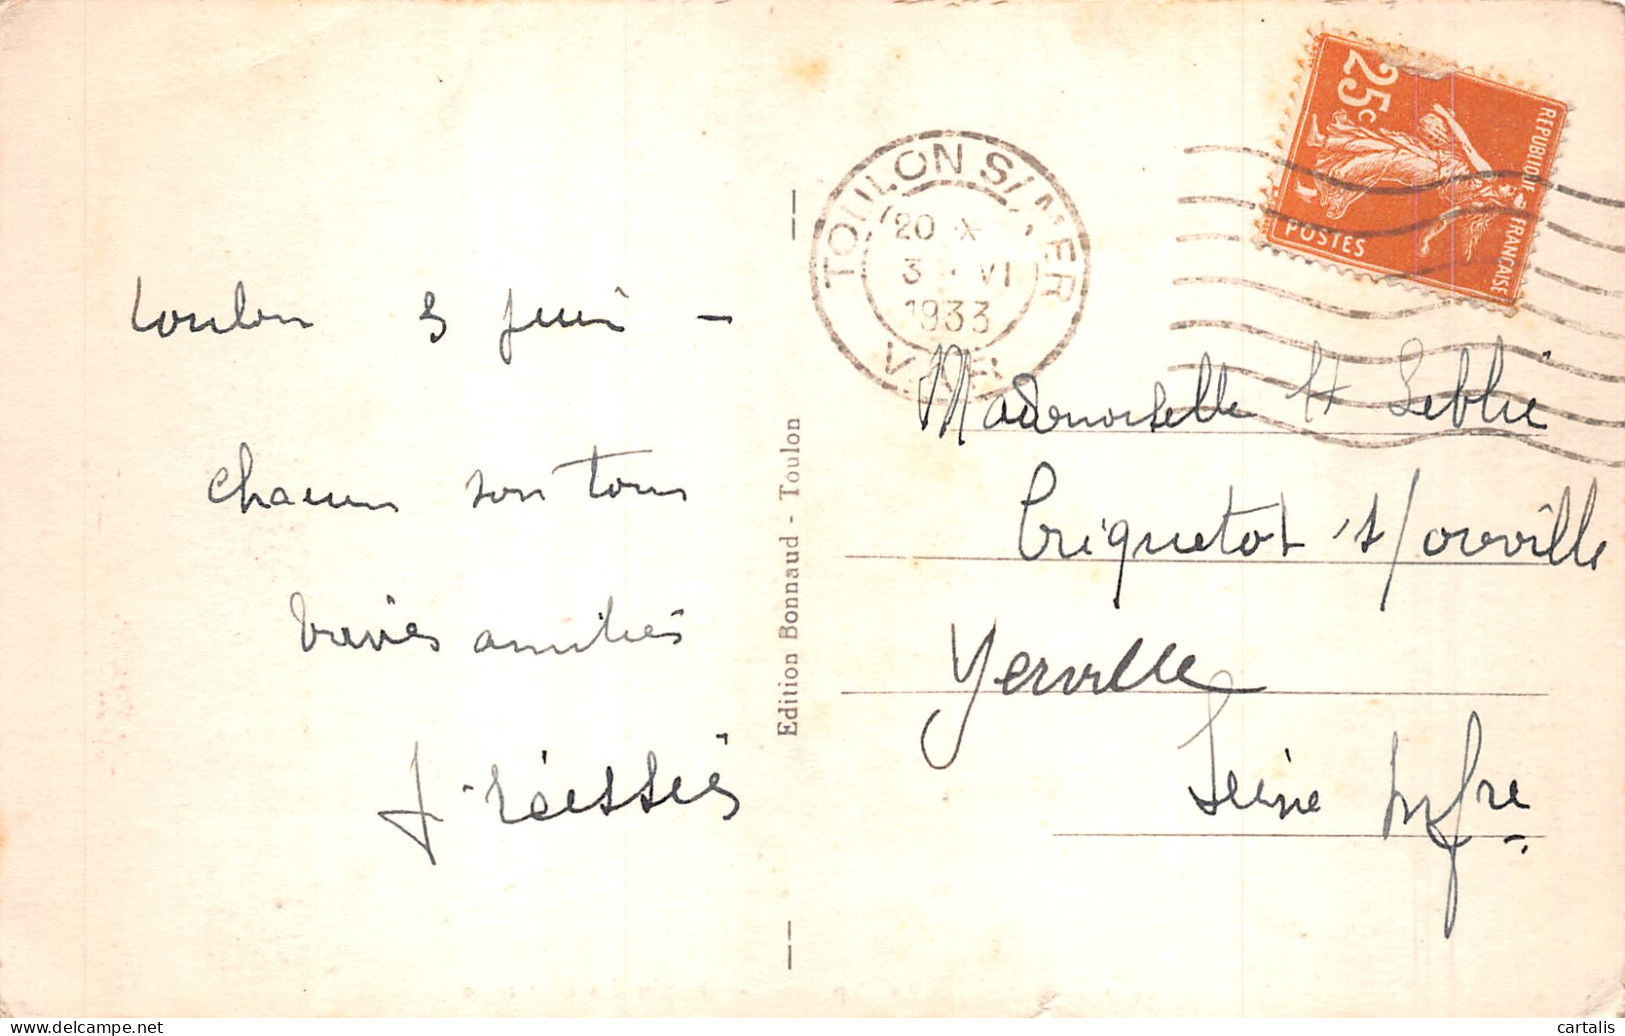 Toulon 3 juin -
chacun son tour
amitiés
Edition Bonnaud - Toulon
TOULON S/MER
20 X
3 - VI
1933
VAR
25c
REPUBLIQUE FRANÇAISE
POSTES
Mademoiselle H Leblié
Criquetot s/ ouville
Yerville
Seine Infre
cartalis